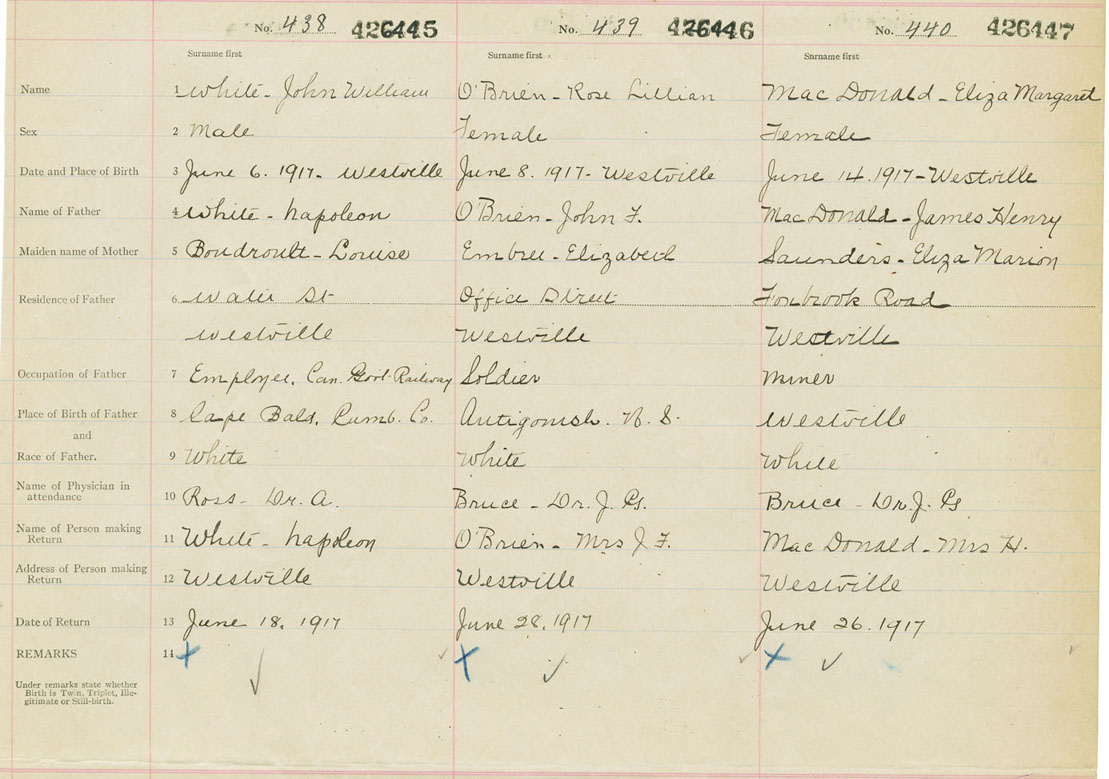 No. 438 426445 No. 439 426446 No. 440 426447
Surname first Surname first Surname first
Name 1 White - John William O'Brien - Rose Lillian Mac Donald - Eliza Margaret
Sex 2 Male Female Female
Date and Place of Birth 3 June 6. 1917 - Westville June 8. 1917 - Westville June 14. 1917 - Westville
Name of Father 4 White - Napoleon O'Brien - John F. Mac Donald - James Henry
Maiden name of Mother 5 Boudroult - Louise Embree - Elizabeth Saunders - Eliza Marion
Residence of Father 6 Water St Office Street Foxbrook Road
Westville Westville Westville
Occupation of Father 7 Employee, Can. Govt. Railway Soldier Miner
Place of Birth of Father 8 Cape Bald, Cumb. Co. Antigonish. N. S. Westville
and
Race of Father. 9 White White White
Name of Physician in
attendance 10 Ross - Dr. A. Bruce - Dr. J. Bruce - Dr. J.
Name of Person making
Return 11 White - Napoleon O'Brien - Mrs J F. Mac Donald - Mrs H.
Address of Person making
Return 12 Westville Westville Westville
Date of Return 13 June 18. 1917 June 28. 1917 June 26. 1917
REMARKS 14
Under remarks state whether
Birth is Twin, Triplet, Ille-
gitimate or Still-birth.